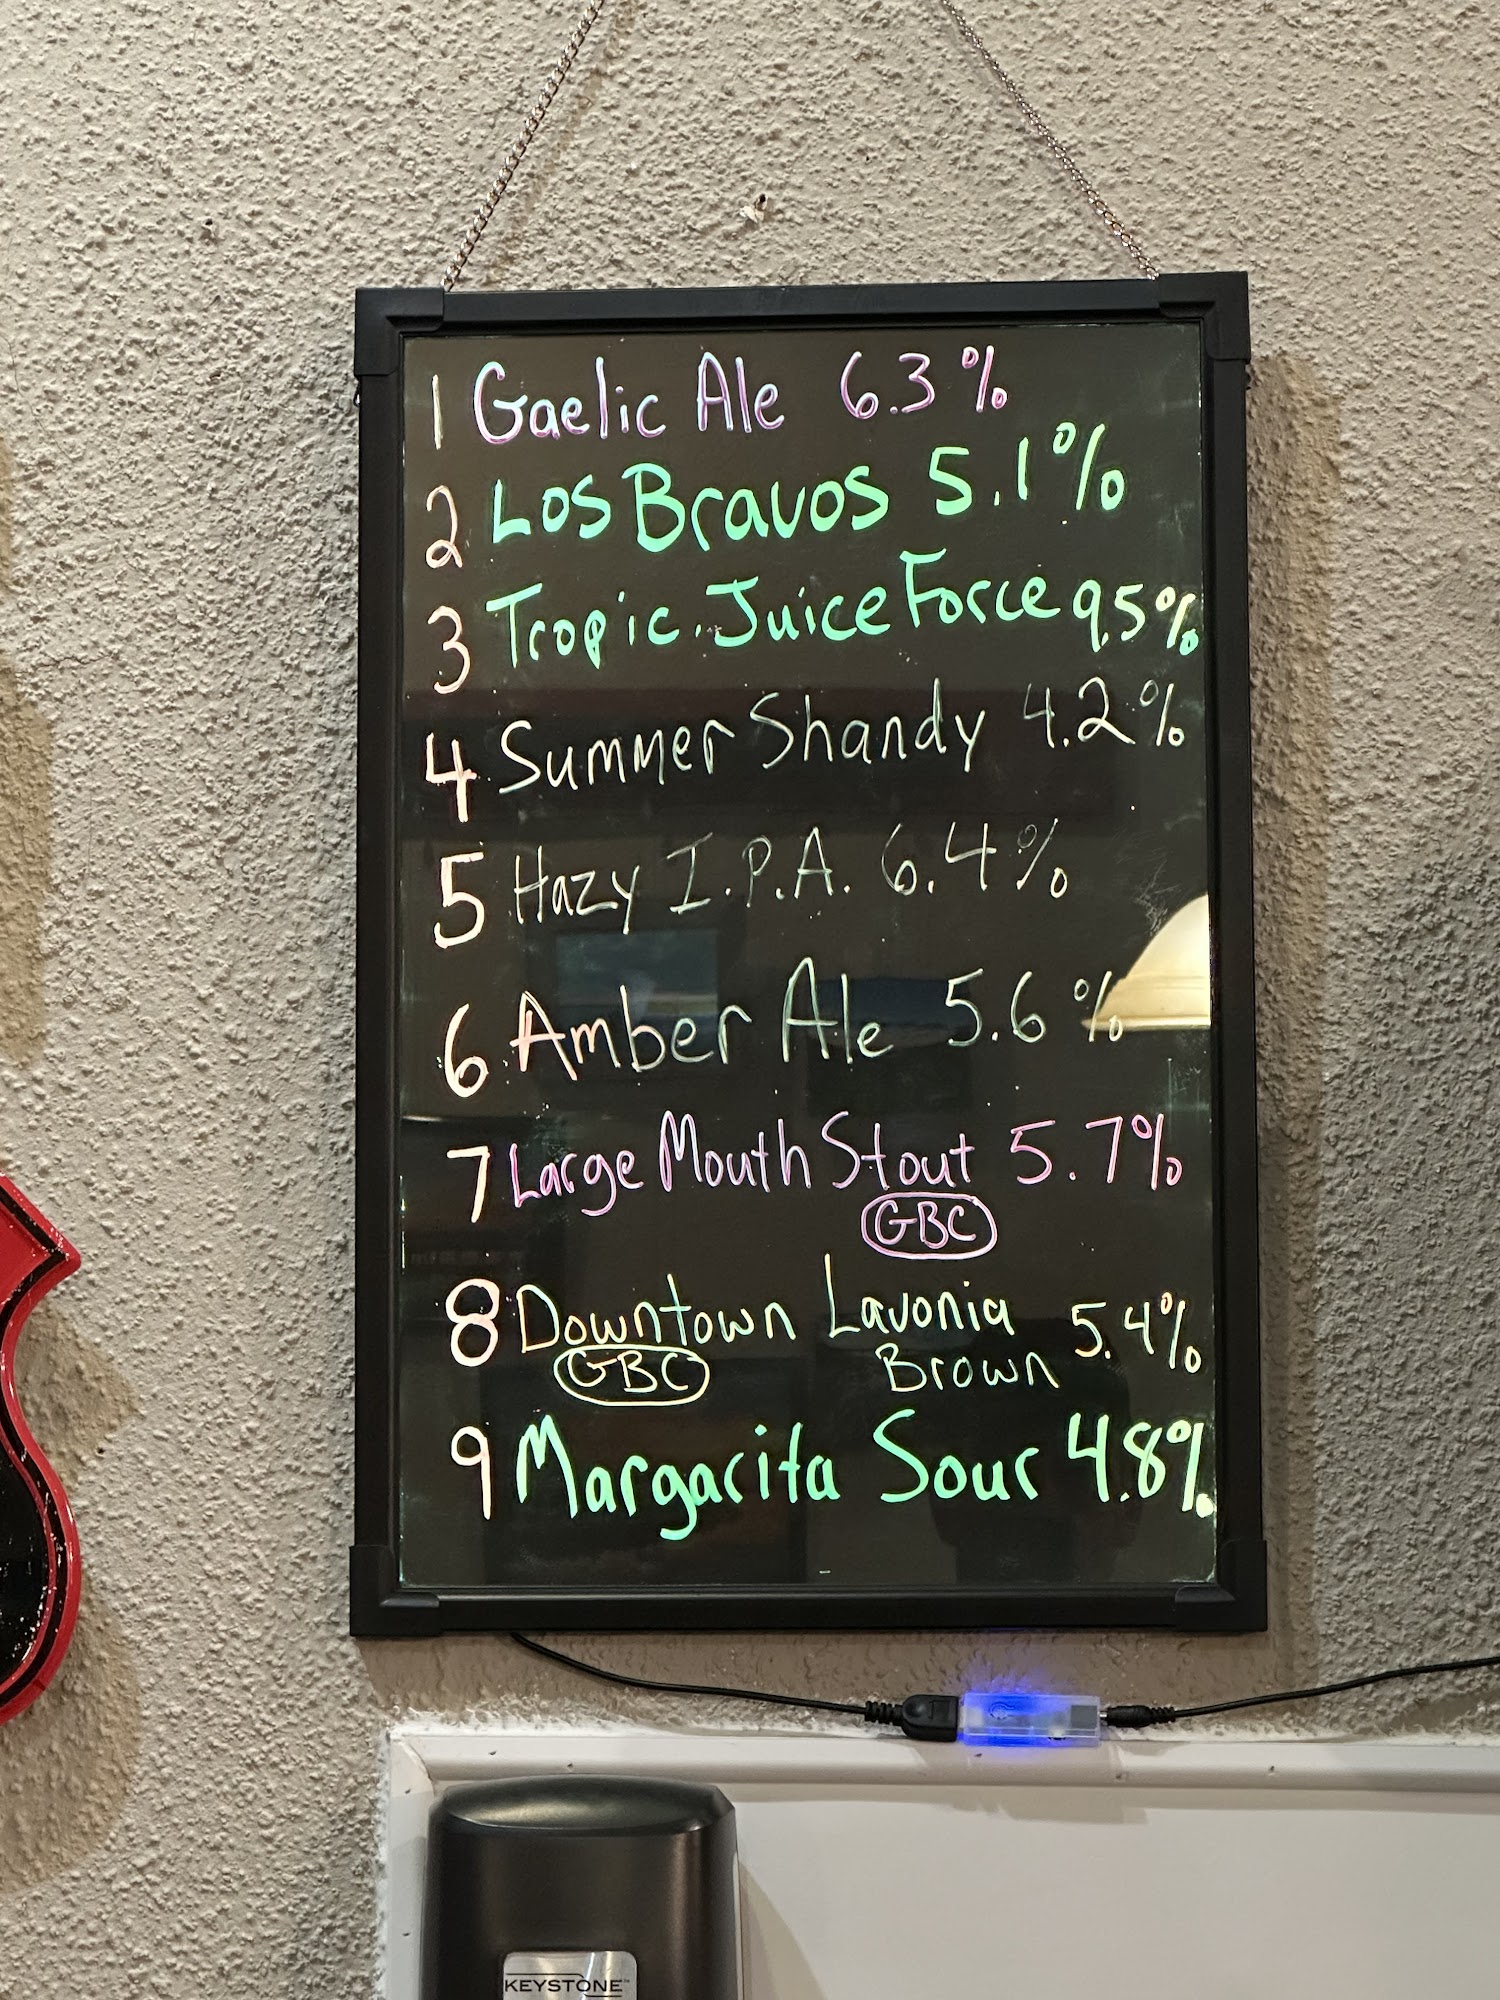 1 Gaelic Ale 6.3%
2 Los Bravos 5.1%
3 Tropic. Juice Force 9.5%
4 Summer Shandy 4.2%
5 Hazy I.P.A. 6.4%
6 Amber Ale 5.6%
7 Large Mouth Stout 5.7%
GBC
8 Downtown Lavonia 5.4%
GBC Brown
9 Margarita Sour 4.8%
KEYSTONE™